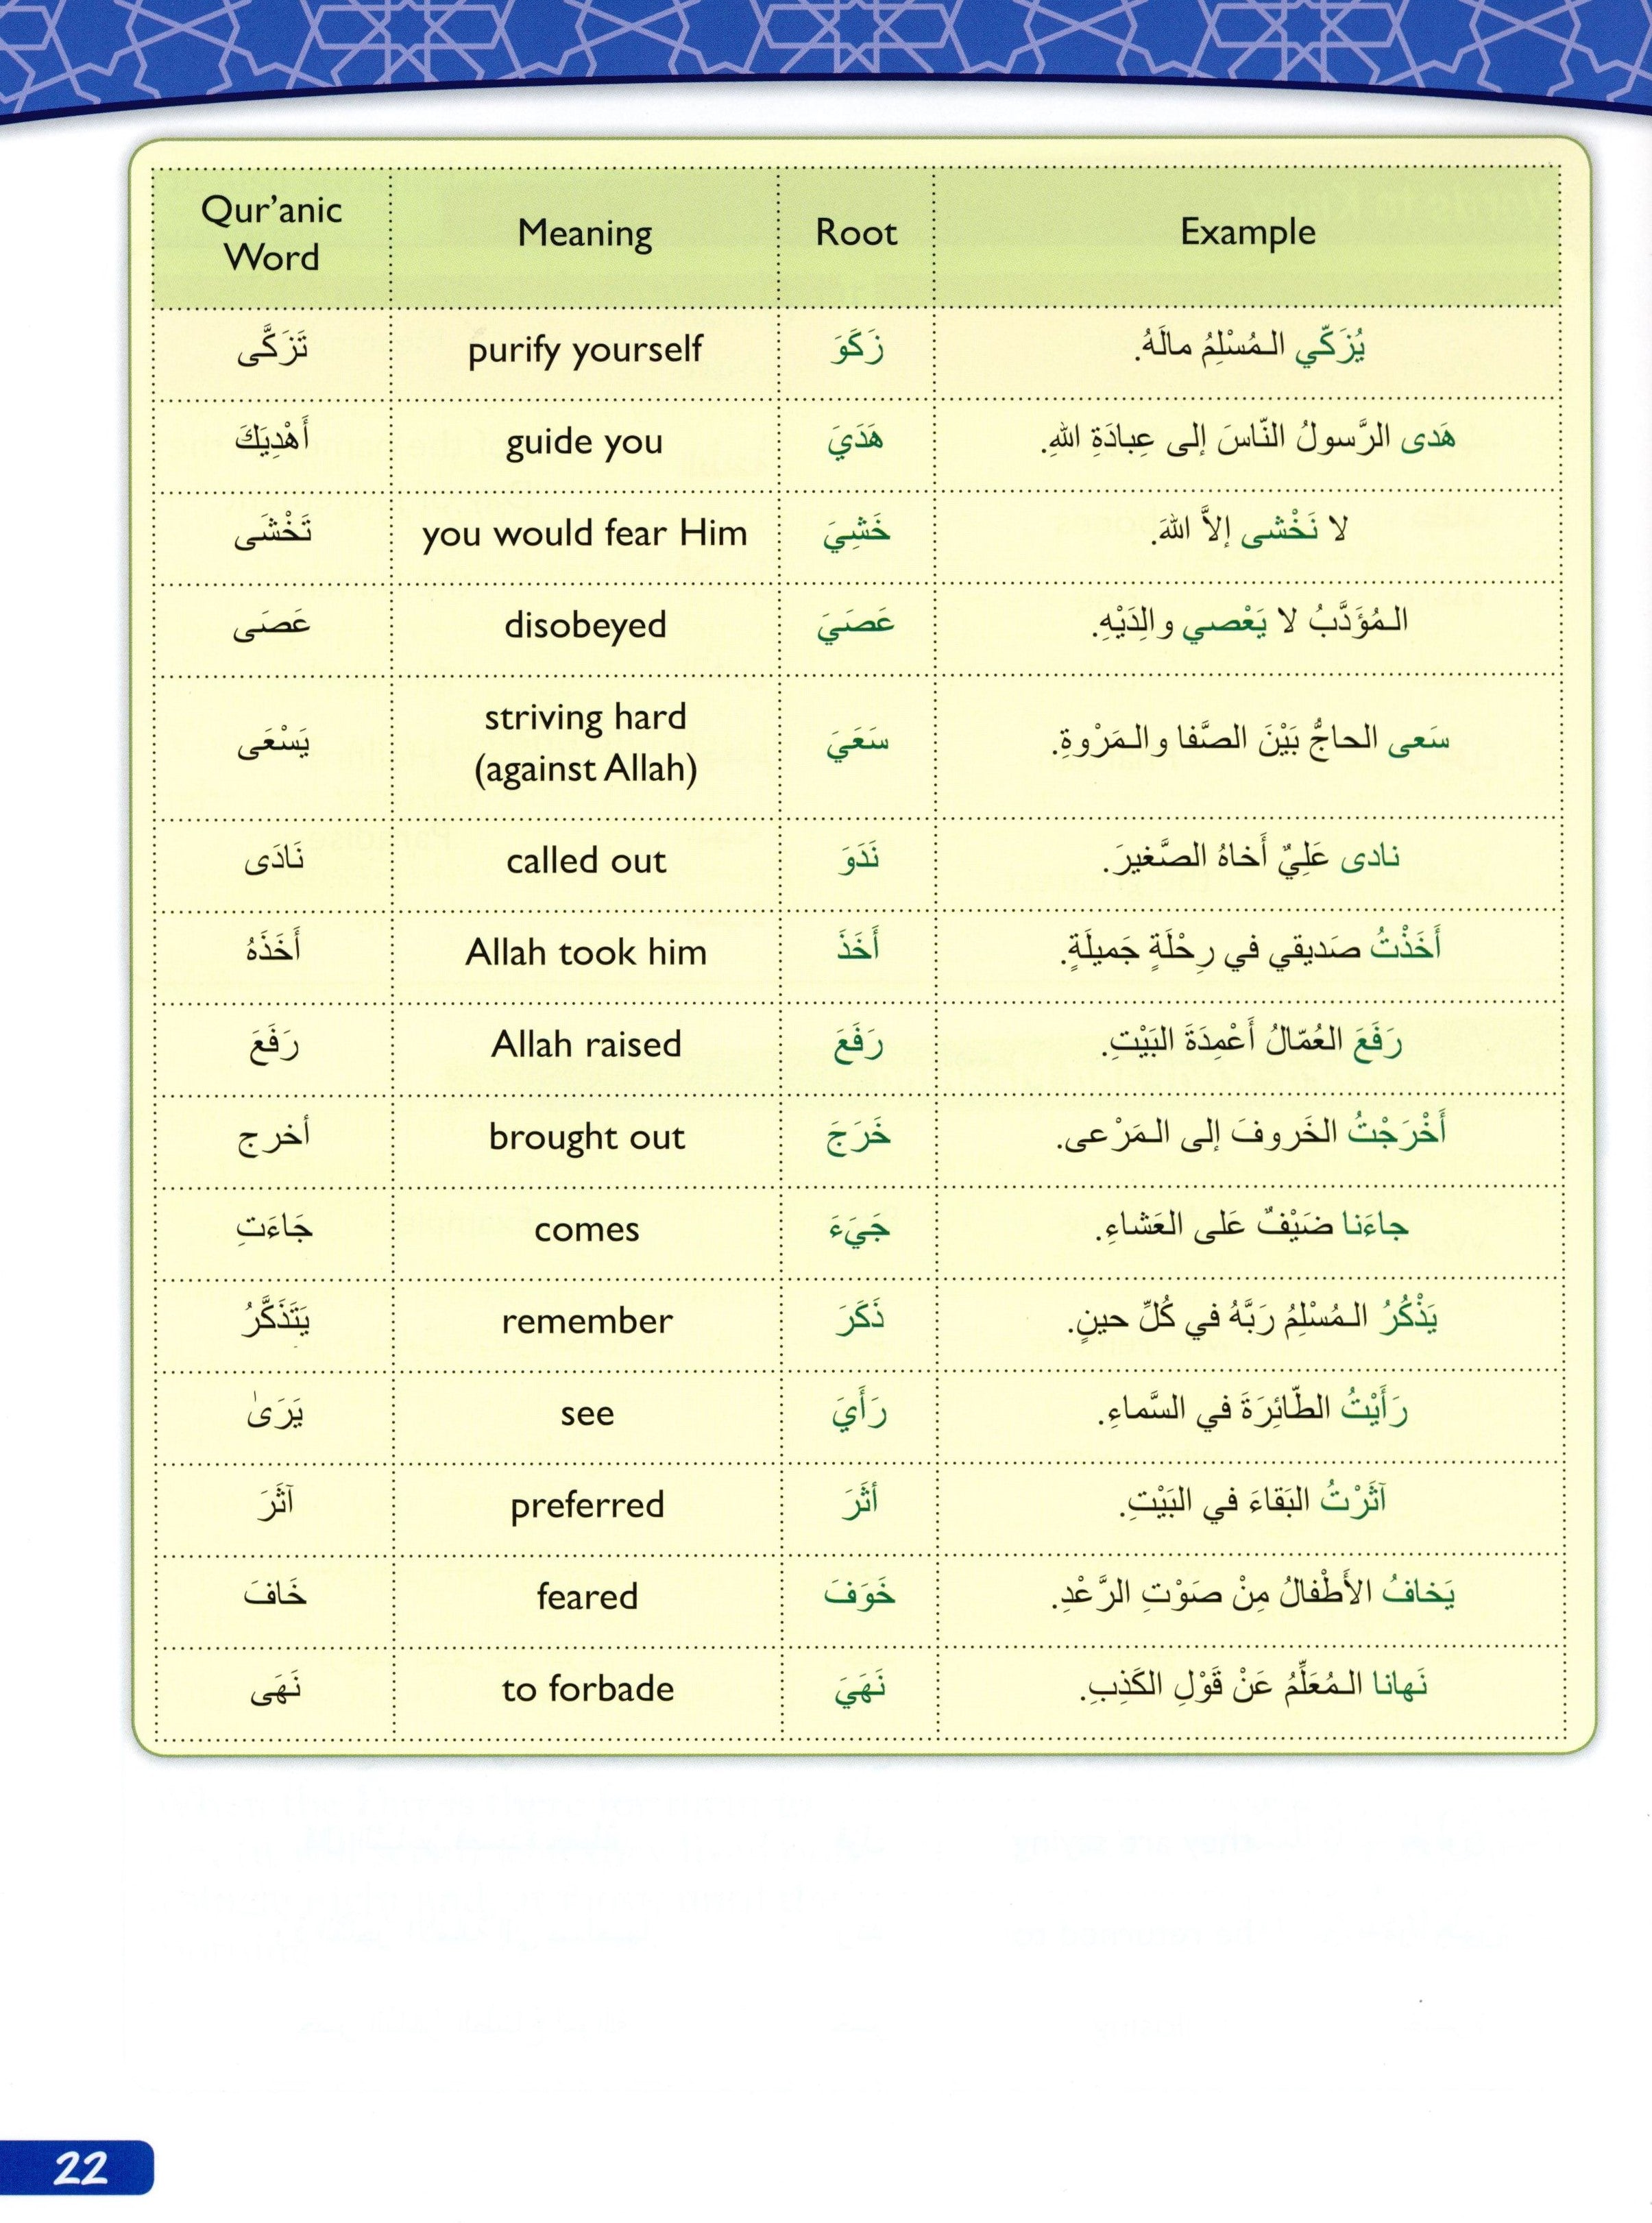 Qur'anic Word Meaning Root Example
تَزَكَّى purify yourself زَكَوَ يُزَكّي الـمُسْلِمُ مالَهُ.
أَهْدِيَكَ guide you هَدَيَ هَدى الرَّسولُ النّاسَ إلى عِبادَةِ اللهِ.
تَخْشَى you would fear Him خَشِيَ لا نَخْشى إلاَّ اللهَ.
عَصَى disobeyed عَصَيَ الـمُؤَدَّبُ لا يَعْصي والِدَيْهِ.
يَسْعَى striving hard (against Allah) سَعَيَ سَعى الحاجُّ بَيْنَ الصَّفا والـمَرْوةِ.
نَادَى called out نَدَوَ نادى عَلِيٌ أَخاهُ الصَّغيرَ.
أَخَذَهُ Allah took him أَخَذَ أَخَذْتُ صَديقي في رِحْلَةٍ جَميلَةٍ.
رَفَعَ Allah raised رَفَعَ رَفَعَ العُمّالُ أَعْمِدَةَ البَيْتِ.
أخرج brought out خَرَجَ أَخْرَجْتُ الخَروفَ إلى الـمَرْعى.
جَاءَتِ comes جَيَءَ جاءَنا ضَيْفٌ عَلى العَشاءِ.
يَتَذَكَّرُ remember ذَكَرَ يَذْكُرُ الـمُسْلِمُ رَبَّهُ في كُلِّ حينٍ.
يَرَىٰ see رَأَيَ رَأَيْتُ الطّائِرَةَ في السَّماءِ.
آثَرَ preferred أثَرَ آثَرْتُ البَقاءَ في البَيْتِ.
خَافَ feared خَوَفَ يَخافُ الأَطْفالُ مِنْ صَوْتِ الرَّعْدِ.
نَهَى to forbade نَهَيَ نَهانا الـمُعَلِّمُ عَنْ قَوْلِ الكَذِبِ.
22